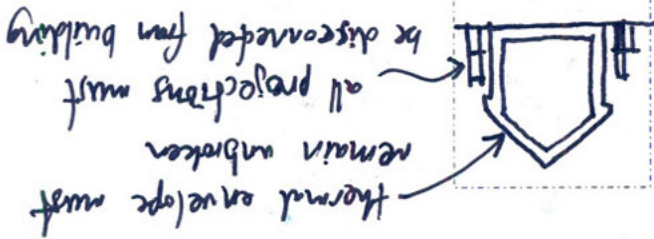 thermal envelope must
remain unbroken
all projections must
be disconneded from building